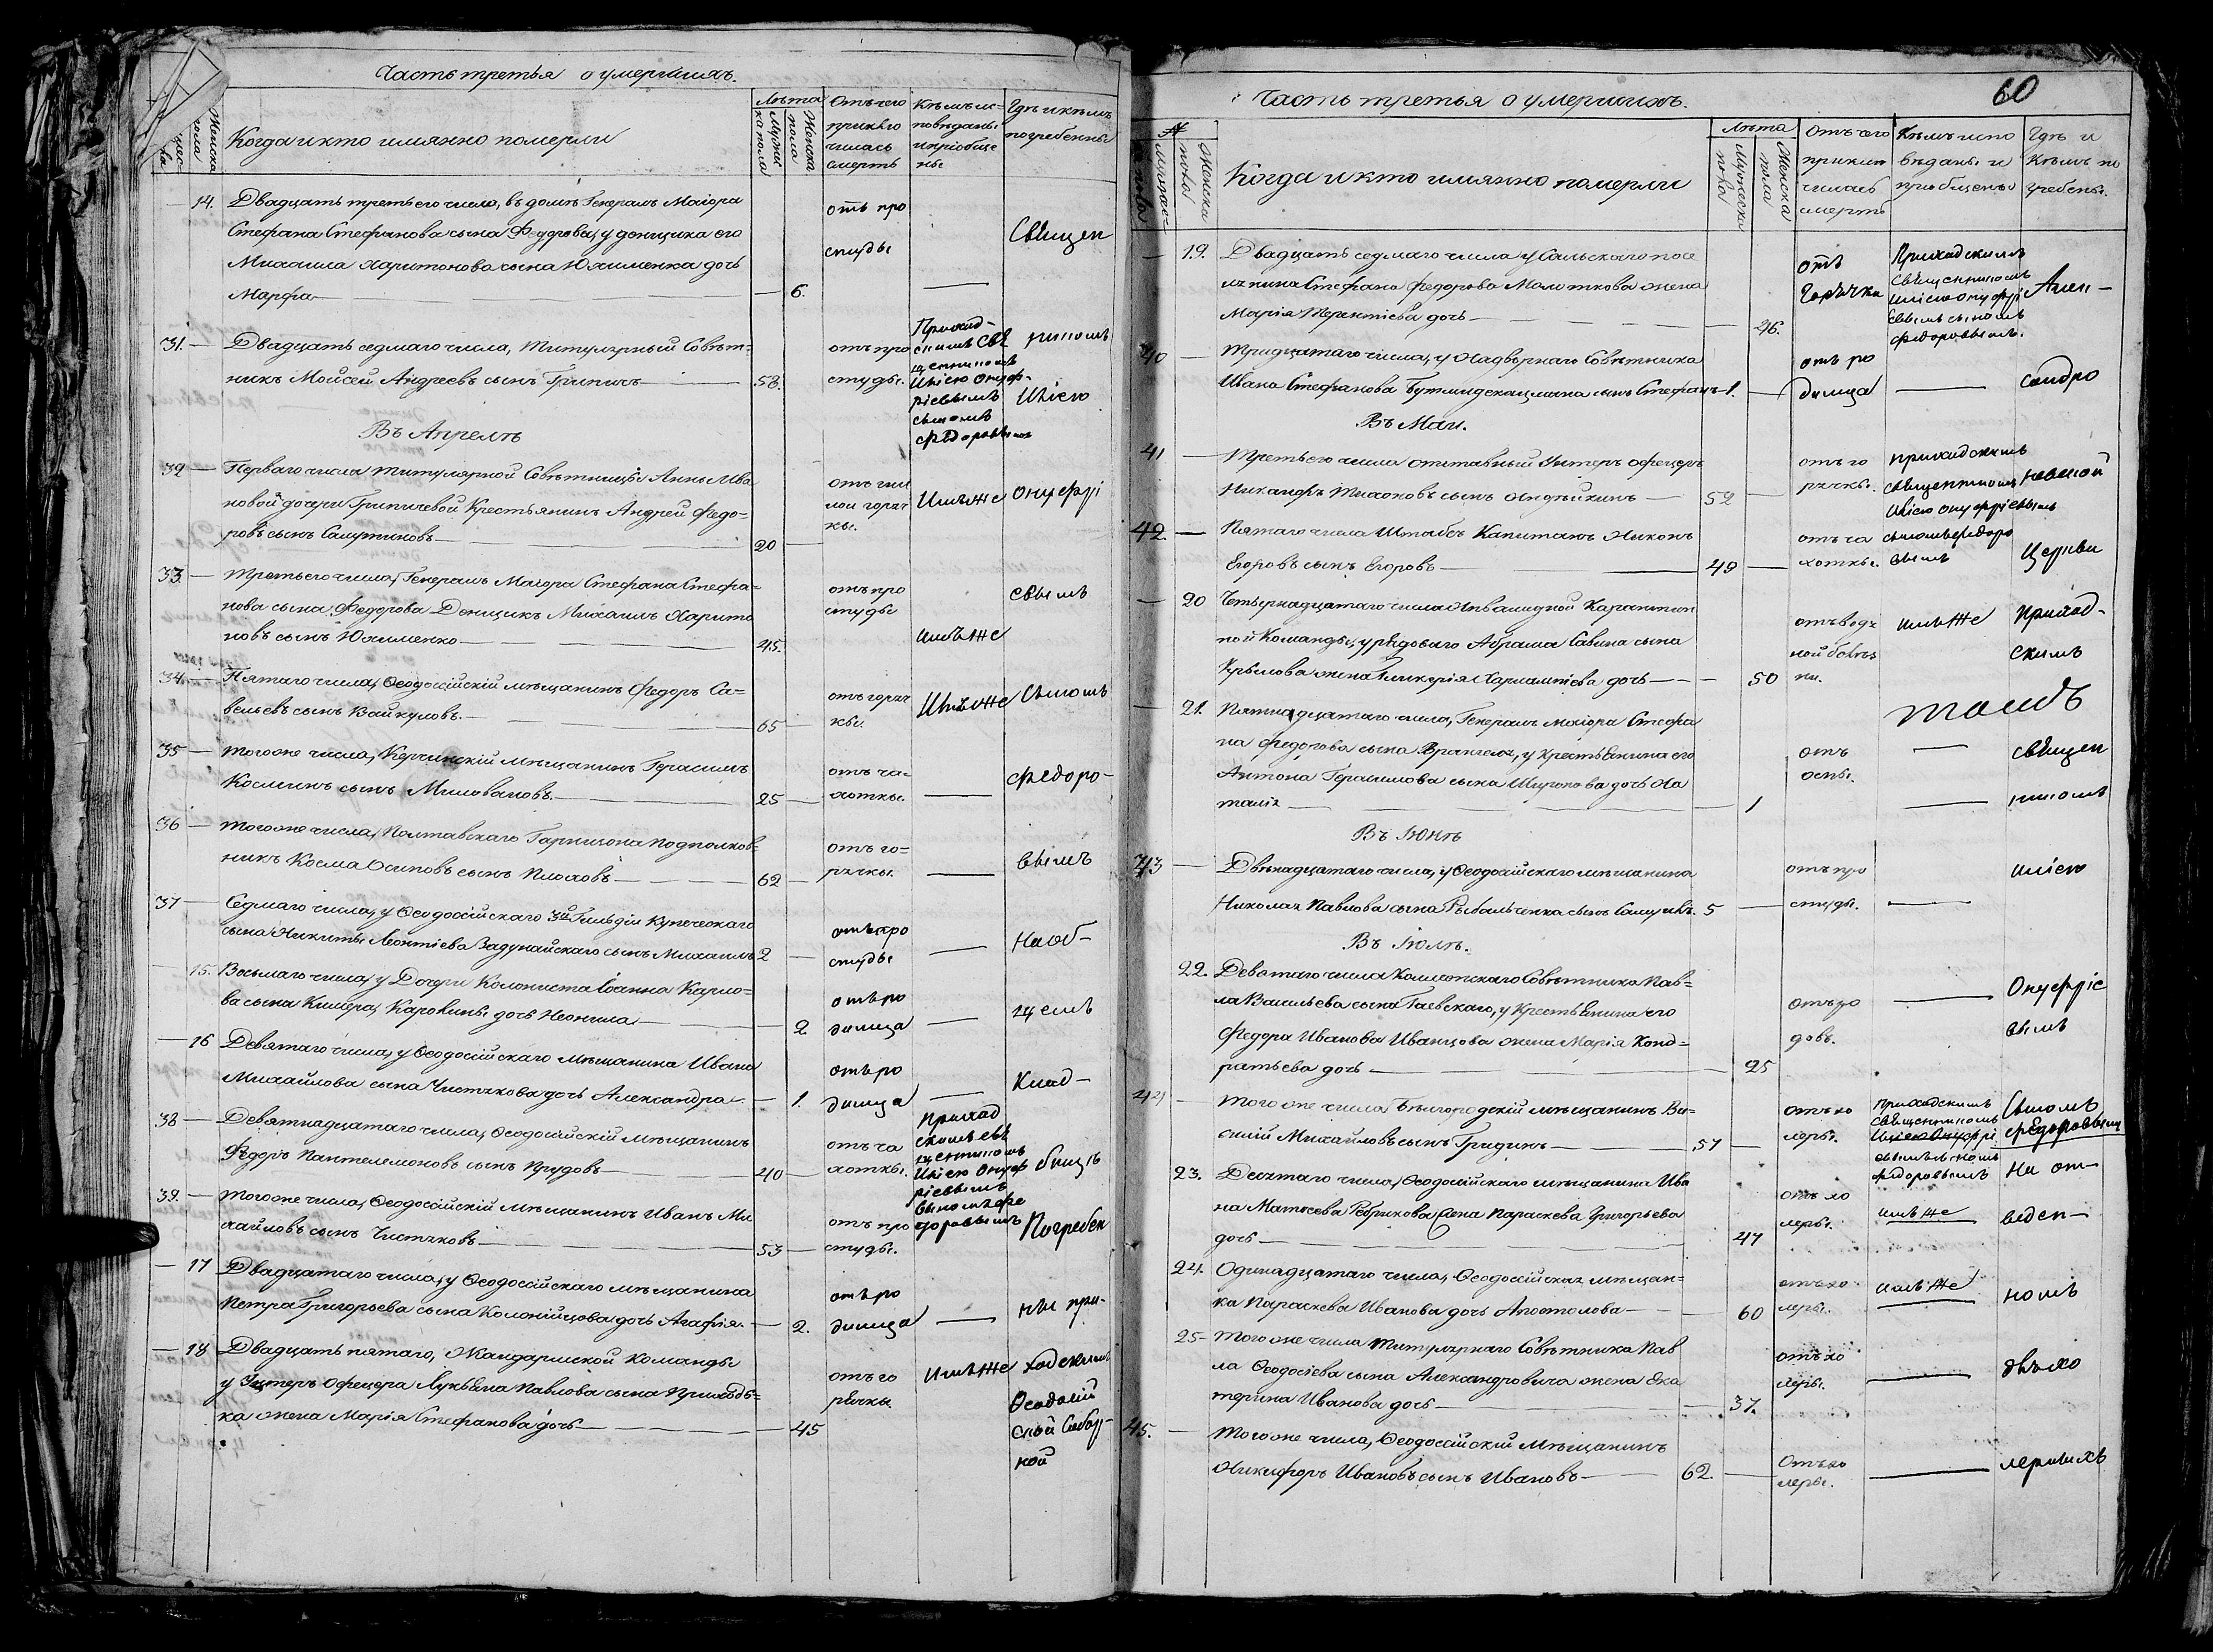 Часть третья о умершихъ.
Женска пола
Когда и кто имянно померли
Лѣта
Мужиска пола
Женска пола
Отъ чего приключилась смерть
Кѣмъ исповѣданы и пріобщены
Гдѣ и кѣмъ погребены
14. Двадцать третьего числа, въ домѣ Генералъ Маіора
Стефана Стефанова сына Федорова, у денщика его
Михаила Харитонова сына Юхименка дочь
Марфа — 6. отъ простуды — Священ
31. — Двадцать седмаго числа, Титулярный Совѣт-
никъ Мойсей Андреевъ сынъ Грипичъ — 58. отъ простуды. Приходскимъ Священникомъ Иліею Онуфріевымъ сыномъ Федоровымъ никомъ Иліею
Въ Апрелѣ
32 — Перваго числа Титулярной Совѣтницы Анны Ива
новой дочери Грипичевой Крестьянинъ Андрей Федо-
ровъ сынъ — 20 — отъ гнилой горячкы. Имъ же Онуфрі
33. — Третьего числа, Генералъ Маіора Стефана Стефа-
нова сына Федорова Денщикъ Михаилъ Харито
новъ сынъ Юхименко — 45. отъ простуды имъ же евымъ
34. — Пятаго числа, Ѳеодосійскій мѣщанинъ Федоръ Са-
вельевъ сынъ Вайкуловъ. — 65 отъ горячкы. Имъ же Сыномъ
35 — Того же числа, Керчинскій Мѣщанинъ Герасимъ
Косминъ сынъ Миловановъ. — 25 — отъ чахоткы. — Федоро-
36 — Того же числа, Полтавскаго Гарнизона подполков-
никъ Косма Осиповъ сынъ Плоховъ — 62 — отъ горячкы. — вымъ
37 — Седмаго числа, у Ѳеодосійскаго 3й Гильдіи Купеческаго
сына Никиты Леонтіева Задунайскаго сынъ Михаилъ 2 — отъ простуды — На об-
15. Восьмаго числа, у Дочери Колониста Іоанна Карло-
ва сына Каролины дочь Неонила — 2 отъ родимца — щемъ
— 16 Девятаго числа, у Ѳеодосійскаго Мѣщанина Ивана
Михайлова сына Чистякова дочь Александра. — 1. отъ родимца — Клад-
38 — Девятнадцатаго числа, Ѳеодосійскій Мѣщанинъ
Федоръ Пантелемоновъ сынъ Прудовъ — 40 — отъ чахоткы. Приходскимъ священникомъ Иліею Онуфріевымъ сыномъ Федоровымъ бищѣ
39. — Того же числа, Ѳеодосійскій Мѣщанинъ Иванъ Ми
хайловъ сынъ Чистяковъ — 53 — отъ простуды. Погребен
— 17 Двадцатаго числа, у Ѳеодосійскаго мѣщанина
Петра Григорьева сына Колонійцова дочь Агафія. — 2. отъ родимца — ны при-
— 18 Двадцать пятаго, Жандармской Команды
у Унтеръ Офецера Лукьяна Павлова сына Приходь-
ка жена Марія Стефанова дочь — 45 отъ горячкы Имъ же ходскимъ Ѳеодосійской Соборной
60
Часть третья о умершихъ.
Женска полов
Когда и кто имянно померли
Лѣта
Мужеска пола
Женска пола
Отъ чего приключилась смерть
Кѣмъ исповѣданы и приобщены
Гдѣ и Кѣмъ погребены.
— 19. Двадцать седмаго числа у Сальскаго посе
лянина Стефана Федорова Молоткова жена
Марія Терентіева дочь — 26. отъ Горячки Приходскимъ Священникомъ Иліею Онуфріевымъ сыномъ Федоровымъ. Алек-
40 — Тридцатаго числа, у Надворнаго Совѣтника
Ивана Стефанова сынъ Стефанъ 1. — отъ родимца — сандро
Въ Маи.
41 — Третьего числа отставный Унтеръ Офецеръ
Никандръ Тихоновъ сынъ — 52 — отъ горячкы. приходскимъ священникомъ Иліею Онуфріевымъ невской
42. — Пятаго числа Штабсъ Капитанъ Никонъ
Егоровъ сынъ Егоровъ — 49 — отъ чахоткы. сыномъ Федоровымъ Церкви
— 20 Четырнадцатаго числа Инвалидной Карантин
ной Команды, у рядоваго Абрама Савина сына
Крылова жена Гликерія Харлампіева дочь — 50 отъ водяной болѣзни. имъ же Приходскимъ
— 21. Пятнадцатаго числа, Генералъ маіора Стефа
на Федорова сына Врангеля, у крестьянина его
Антона Герасимова сына Широкова дочь На
талія — 1 отъ оспы. — тожъ священникомъ
Въ Іюнѣ
43 — Двѣнадцатаго числа, у Ѳеодосійскаго мѣщанина
Николая Павлова сына Рыбальченка сынъ Самуилъ. 5 — отъ простуды. — иліею
Въ Іюлѣ.
22. Девятаго числа Коллежскаго Совѣтника Пав-
ла Васильева сына Гаевскаго, у Крестьянина его
Федора Иванова Иванцова жена Марія Конд-
ратьева дочь — 25 отъ родовъ. — Онуфріевымъ
44 — Того же числа, Бѣлгородскій мѣщанинъ Ва-
силій Михайловъ сынъ Гридинъ — 57 — отъ холеры. приходскимъ священникомъ Иліею Онуфріевымъ сыномъ Федоровымъ Сыномъ Федоровымъ
23. Десятаго числа, Ѳеодосійскаго мѣщанина Ива
на Матвеева Ребрикова жена Параскева Григорьева
дочь — 47 отъ холеры. имъ же На от-веден-
24. Одинадцатаго числа, Ѳеодосійская мѣщан-
ка Параскева Иванова дочь Апостолова — 60 отъ холеры. имъ же номъ
25 — Того же числа Титулярнаго Совѣтника Пав
ла Ѳеодосіева сына Александровича жена Ека
терина Иванова дочь — 37. отъ холеры. — для хо
45. — Того же числа, Ѳеодосійскій Мѣщанинъ
Никифоръ Ивановъ сынъ Ивановъ — 62. — Отъ холеры. — лерныхъ